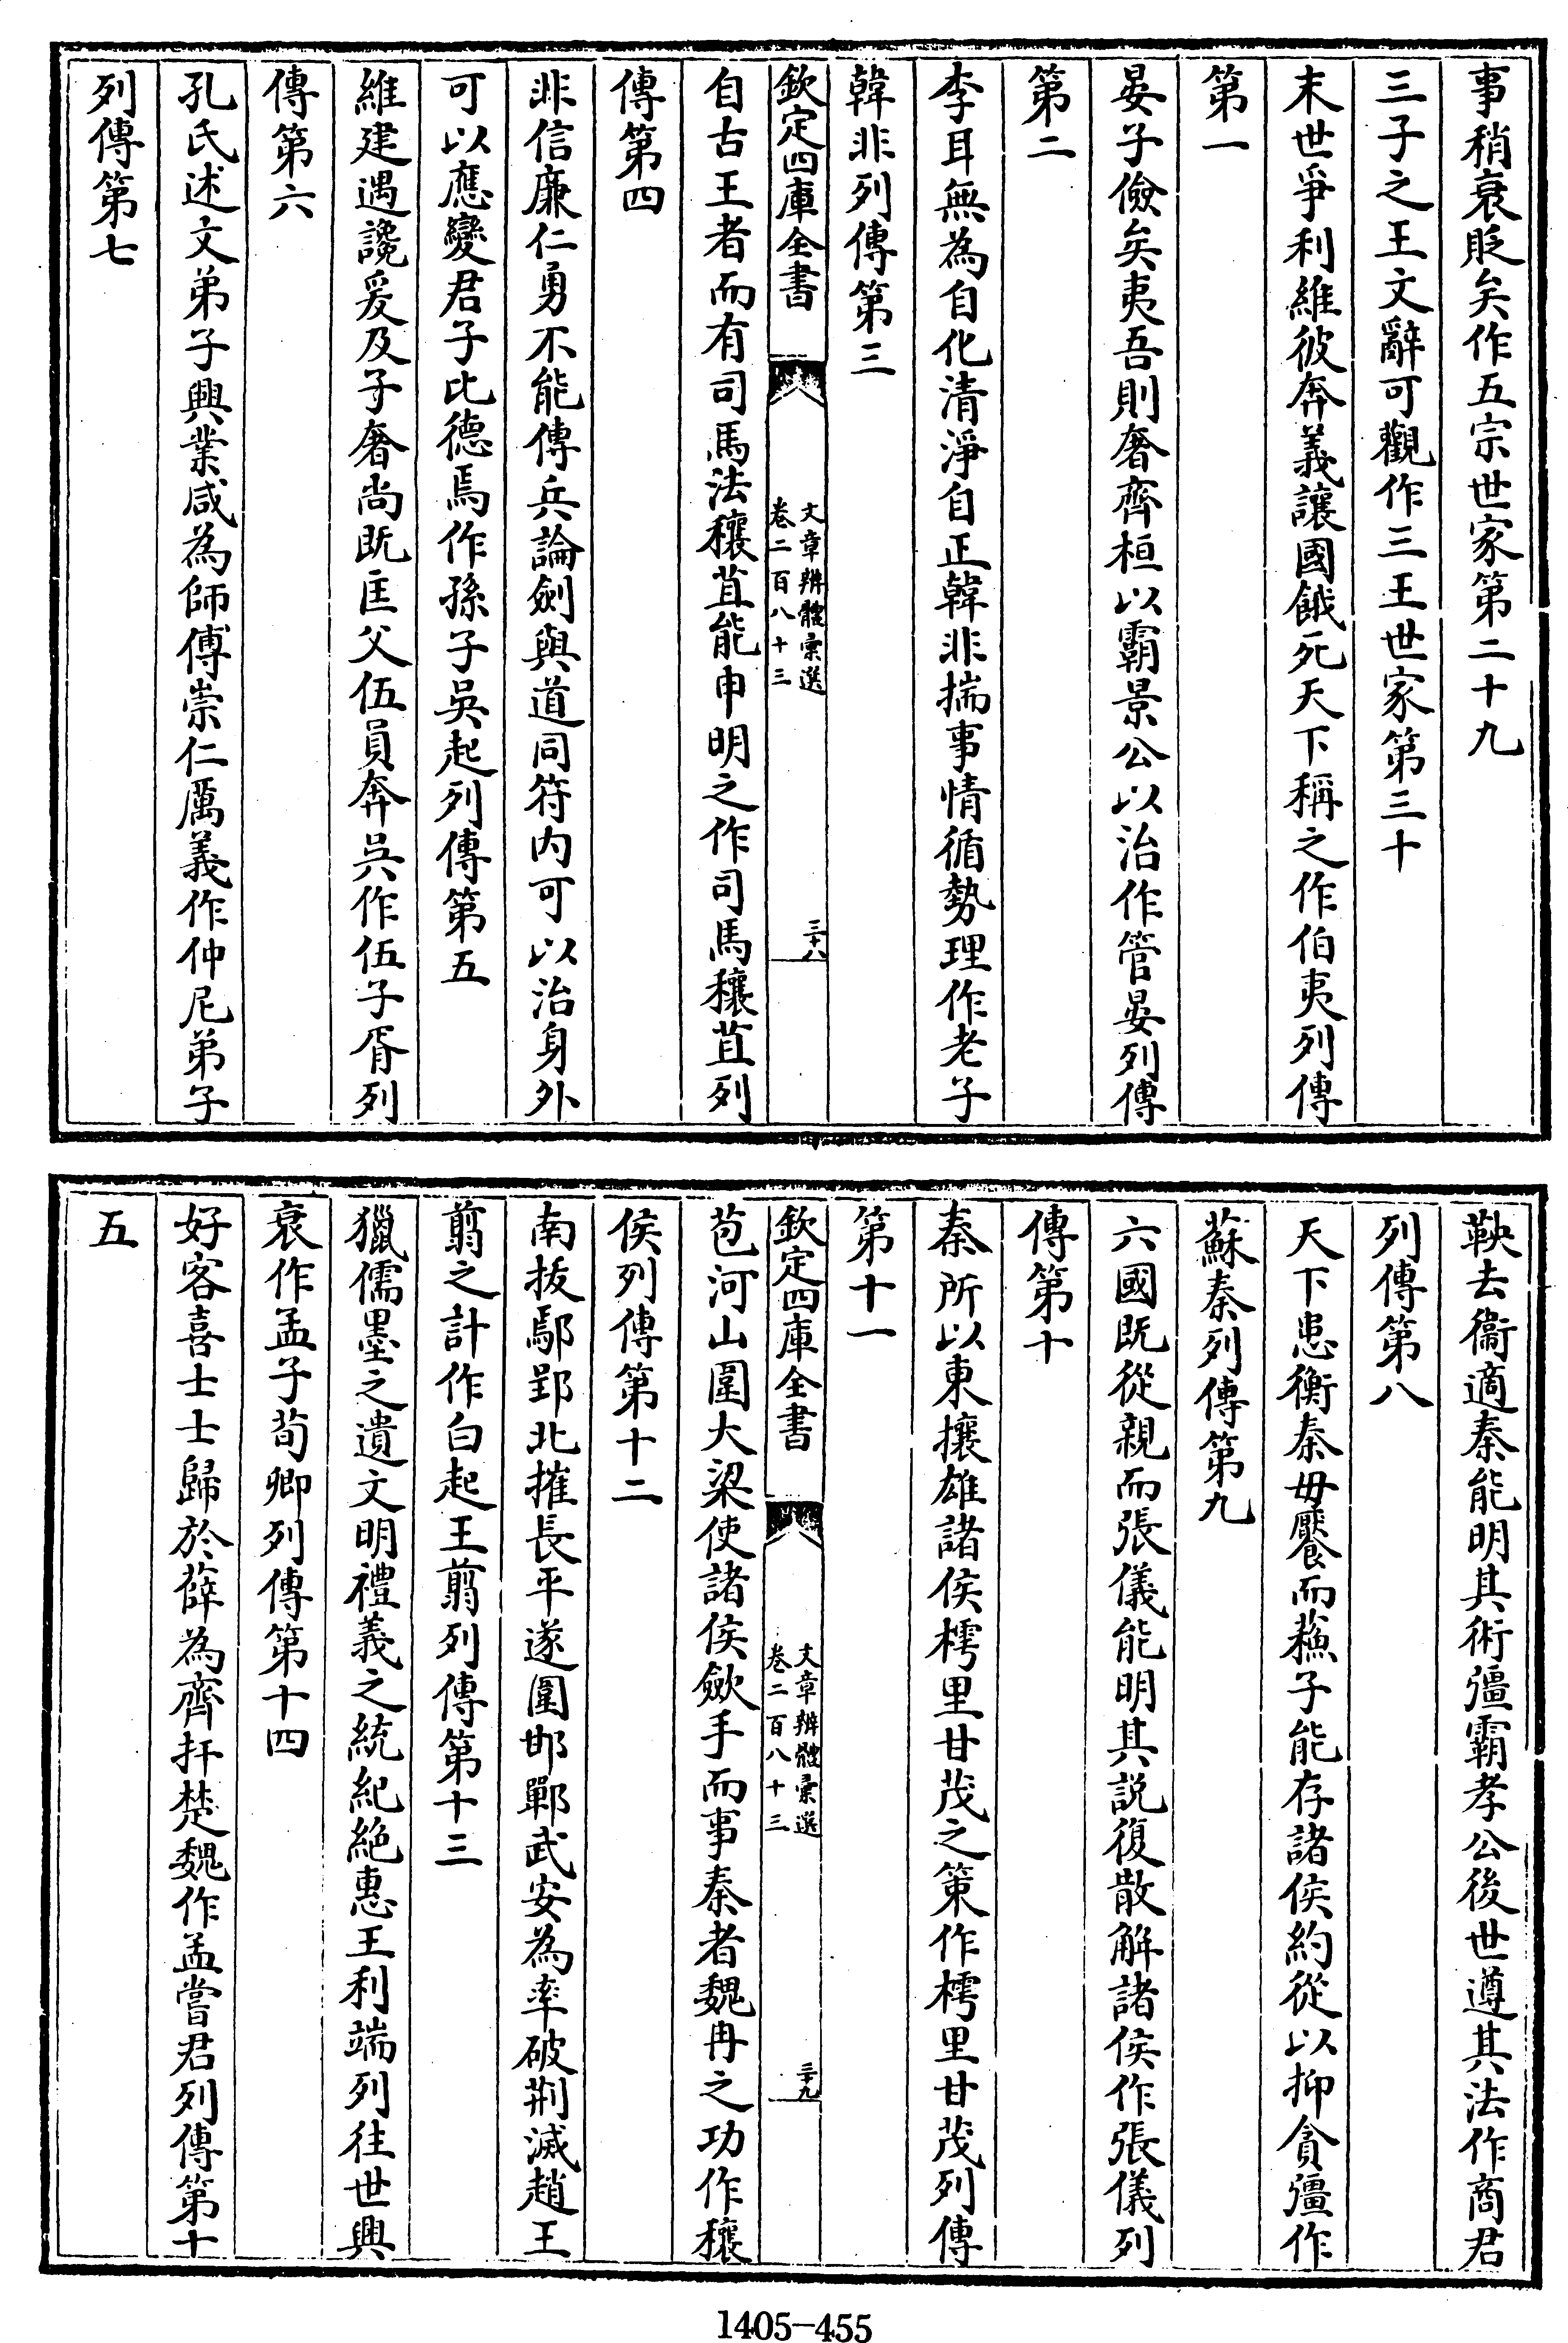 事稍衰貶矣作五宗世家第二十九
三子之王文辭可觀作三王世家第三十
末世爭利維彼奔義讓國餓死天下稱之作伯夷列傳
第一
晏子儉矣夷吾則奢齊桓以霸景公以治作管晏列傳
第二
李耳無為自化清淨自正韓非揣事情循勢理作老子
韓非列傳第三
欽定四庫全書
文章辨體彙選
卷二百八十三
三十八
自古王者而有司馬法穰苴能申明之作司馬穰苴列
傳第四
非信廉仁勇不能傳兵論劍與道同符内可以治身外
可以應變君子比德焉作孫子吳起列傳第五
維建遇讒爰及子奢尚既匡父伍員奔吳作伍子胥列
傳第六
孔氏述文弟子興業咸為師傅崇仁厲義作仲尼弟子
列傳第七
鞅去衞適秦能明其術彊霸孝公後世遵其法作商君
列傳第八
天下患衡秦毋饜而蘇子能存諸侯約從以抑貪彊作
蘇秦列傳第九
六國既從親而張儀能明其説復散解諸侯作張儀列
傳第十
秦所以東攘雄諸侯樗里甘茂之策作樗里甘茂列傳
第十一
欽定四庫全書
文章辨體彙選
卷二百八十三
三十九
苞河山圍大梁使諸侯歛手而事秦者魏冉之功作穰
侯列傳第十二
南拔鄢郢北摧長平遂圍邯鄲武安為率破荆滅趙王
翦之計作白起王翦列傳第十三
獵儒墨之遺文明禮義之統紀絶惠王利端列往世興
衰作孟子荀卿列傳第十四
好客喜士士歸於薛為齊扞楚魏作孟嘗君列傳第十
五
1405-455